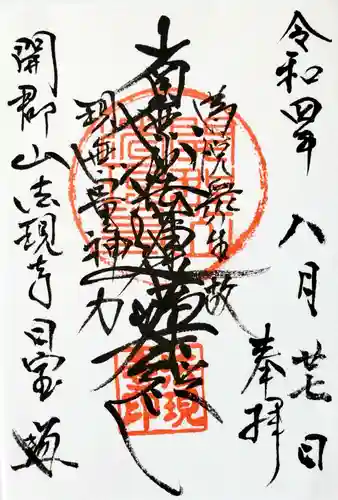 令和四年八月廿七日
奉拝
為悦衆生故
南無妙法蓮華経
現無量神力
開郡山法現寺日宝